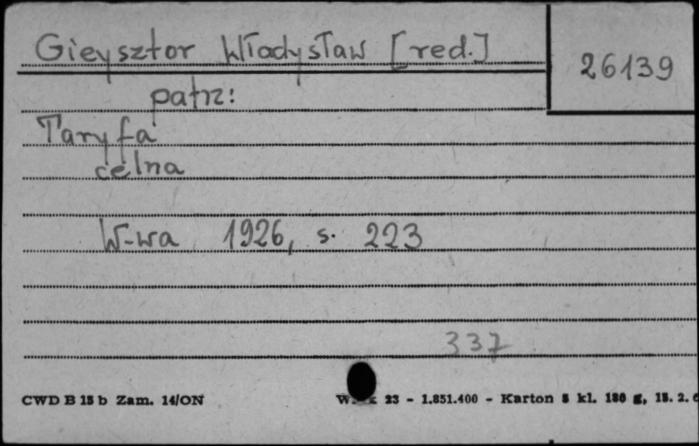 Gieysztor Władysław [red.]
26139
patrz:
Taryfa
celna
W-wa 1926, s. 223
337
CWD B 18 b Zam. 14/ON
23 - 1.851.400 - Karton kl. 180 g, 18. 2. 6